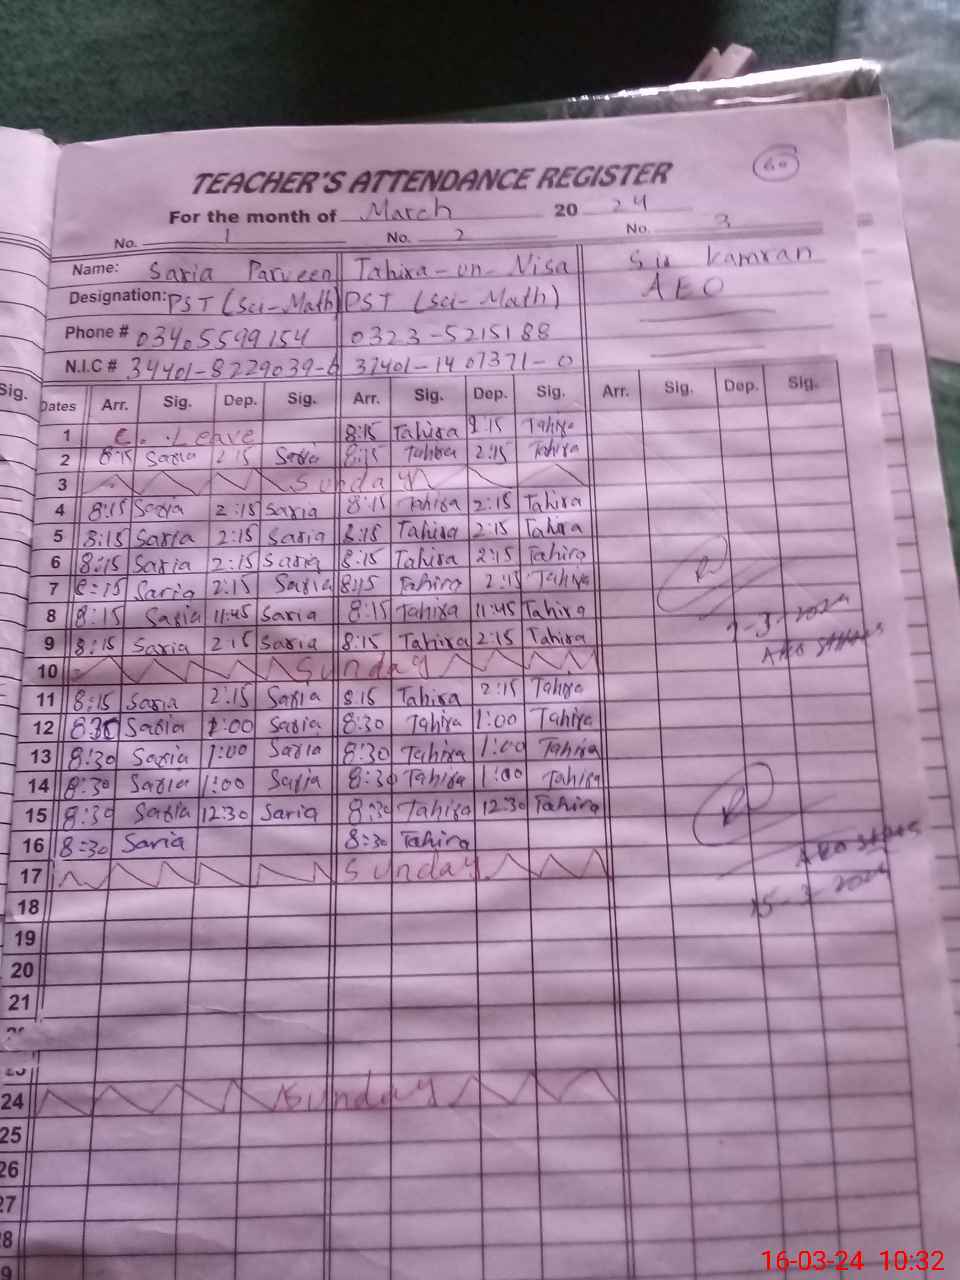 60
TEACHER'S ATTENDANCE REGISTER
For the month of March 20 24
No. 1 No. 2 No. 3
Name: Saria Parveen Tahira-un-Nisa Sir Kamran
Designation: PST (Sci-Math) PST (Sci-Math) AEO
Phone # 03405599154 0323-5215188
N.I.C # 34401-8229039-6 37401-1407371-0
Sig. Dates Arr. Sig. Dep. Sig. Arr. Sig. Dep. Sig. Arr. Sig. Dep. Sig.
1 C. Leave 8:15 Tahira 2:15 Tahira
2 8:15 Saria 2:15 Saria 8:15 Tahira 2:15 Tahira
3 Sunday
4 8:15 Saria 2:15 Saria 8:15 Tahira 2:15 Tahira
5 8:15 Saria 2:15 Saria 8:15 Tahira 2:15 Tahira
6 8:15 Saria 2:15 Saria 8:15 Tahira 2:15 Tahira
7 8:15 Saria 2:15 Saria 8:15 Tahira 2:15 Tahira
8 8:15 Saria 11:45 Saria 8:15 Tahira 11:45 Tahira
9 8:15 Saria 2:15 Saria 8:15 Tahira 2:15 Tahira
10 Sunday
11 8:15 Saria 2:15 Saria 8:15 Tahira 2:15 Tahira
12 8:30 Saria 1:00 Saria 8:30 Tahira 1:00 Tahira
13 8:30 Saria 1:00 Saria 8:30 Tahira 1:00 Tahira
14 8:30 Saria 1:00 Saria 8:30 Tahira 1:00 Tahira
15 8:30 Saria 12:30 Saria 8:30 Tahira 12:30 Tahira
16 8:30 Saria 8:30 Tahira
17 Sunday
15-3-2024
18
19
20
21
24 Sunday
25
26
27
28
16-03-24 10:32